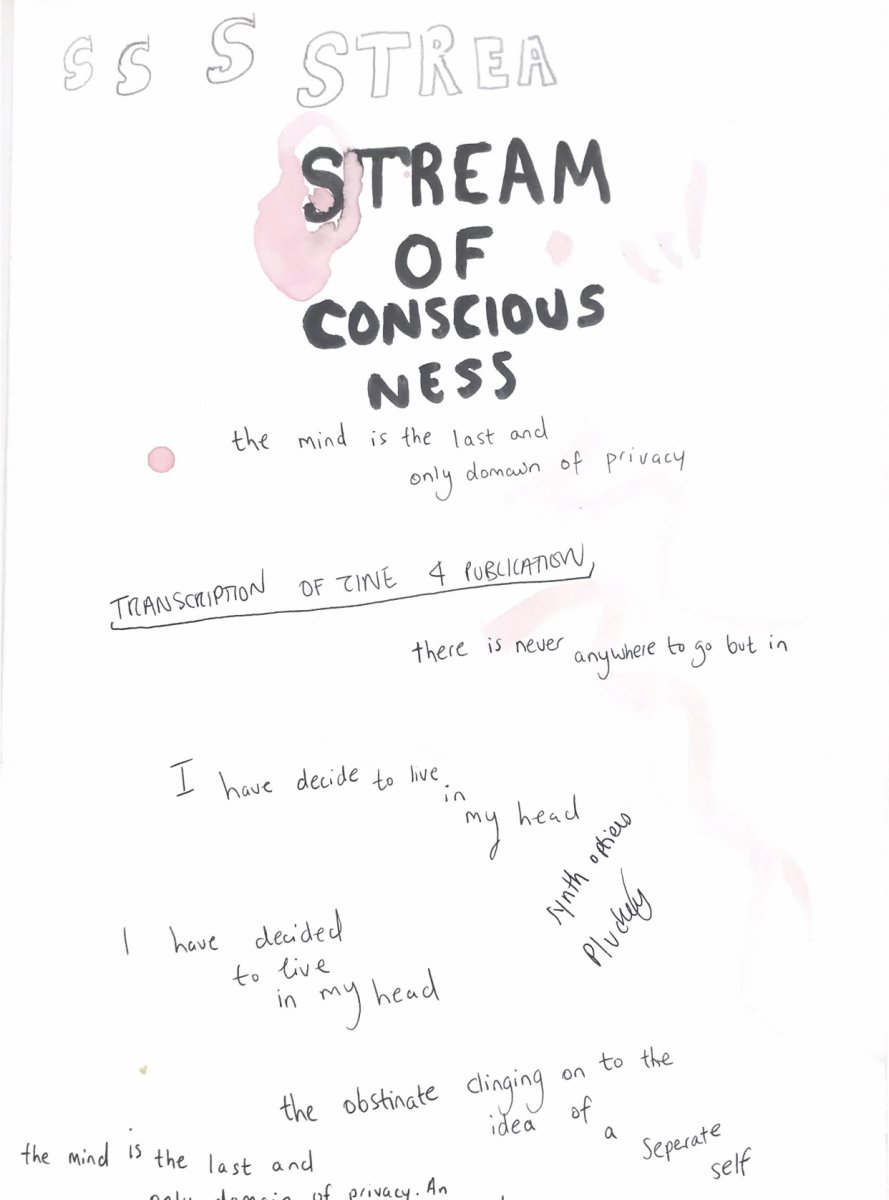 S S S STREA
STREAM
OF
CONSCIOUS
NESS
the mind is the last and
only domain of privacy
TRANSCRIPTION OF ZINE 4 PUBLICATION,
there is never anywhere to go but in
I have decide to live
in
my head
synth
I have decided
to live
in my head
the obstinate clinging on to the
idea of
a
Seperate
self
the mind is the last and
only domain of privacy. An